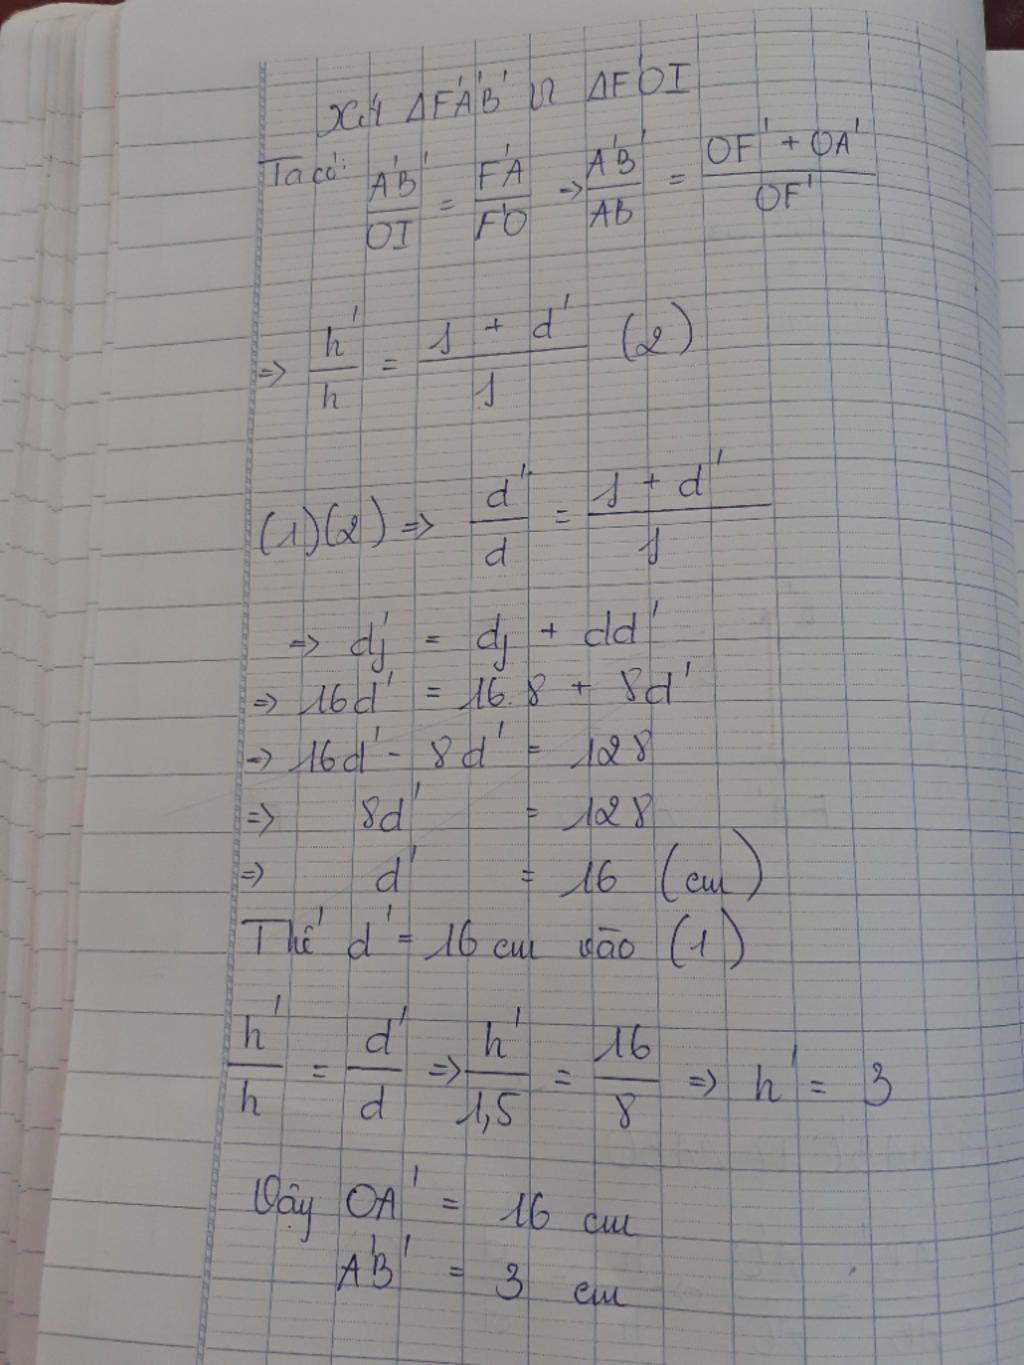 Xét ΔF'A'B' ∽ ΔF'OI
Ta có: A'B'/OI = F'A'/F'O => A'B'/AB = OF' + OA'/OF'
=> h'/h = f + d'/f (2)
(1)(2) => d'/d = f + d'/f
=> d'f = df + dd'
=> 16d' = 16.8 + 8d'
=> 16d' - 8d' = 128
=> 8d' = 128
=> d' = 16 (cm)
Thế d' = 16 cm vào (1)
h'/h = d'/d => h'/1,5 = 16/8 => h' = 3
Vậy OA' = 16 cm
A'B' = 3 cm